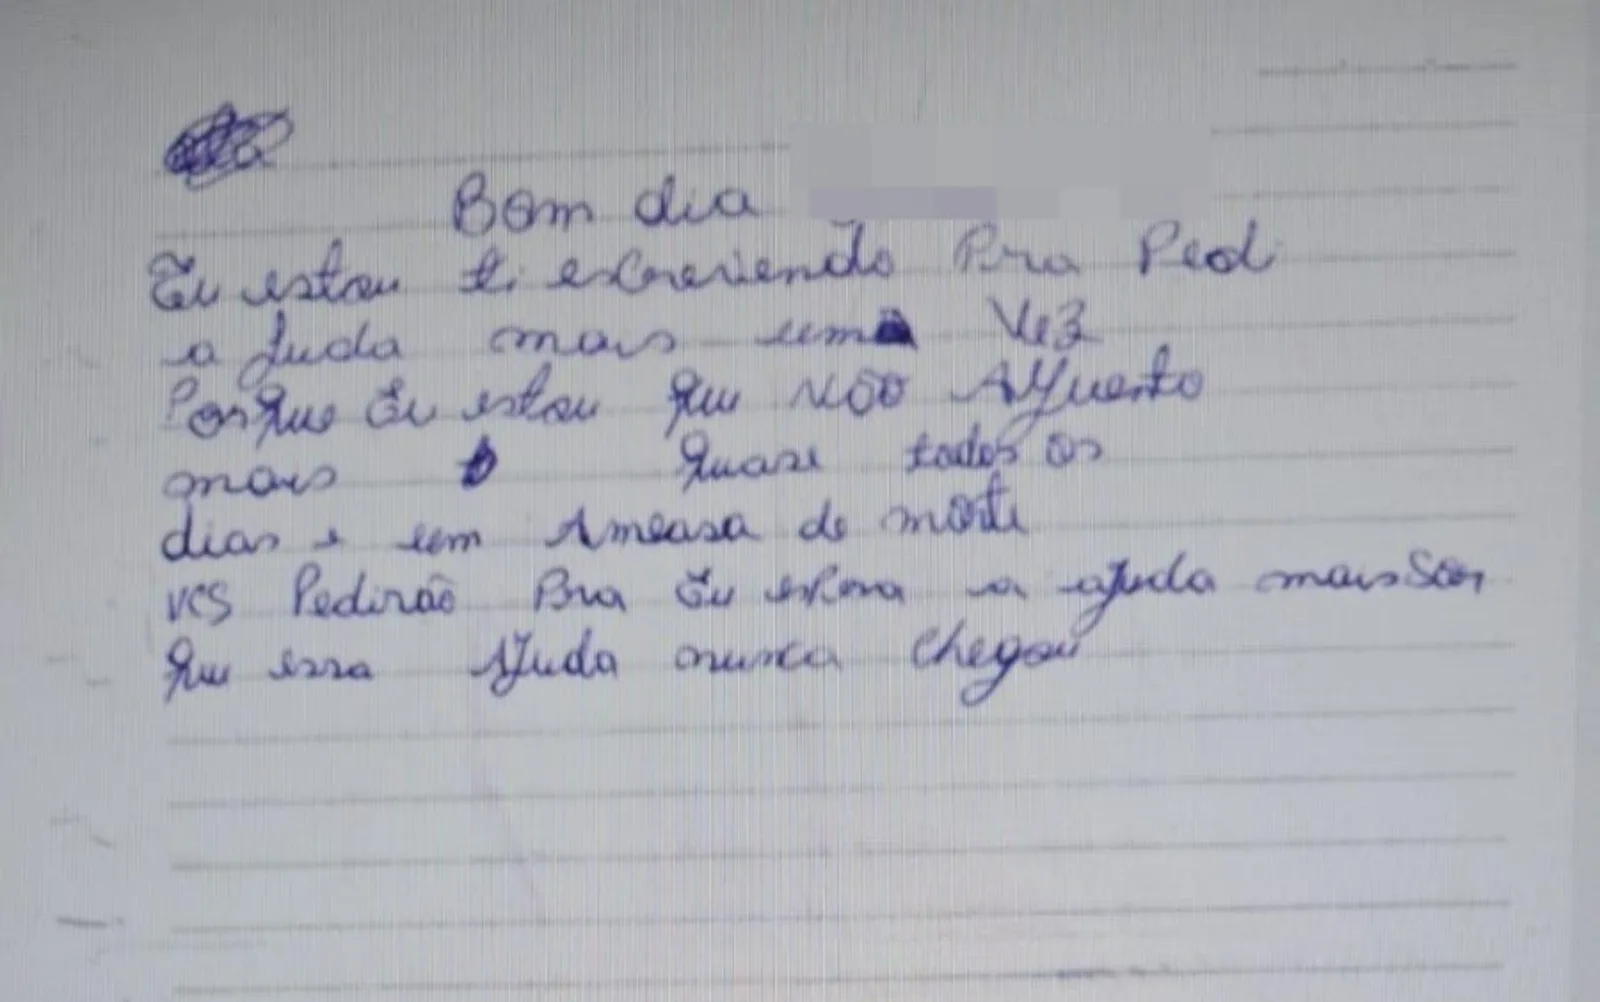 Bom dia
Eu estou ti escrevendo Pra Pedi
a Juda mais uma Vez
Porque Eu estou que NÓO AJuento
mais quase todos os
dias e um Ameasa de morte
vcs Pedirão Pra Eu espera a ajuda mais So
que essa AJuda nunca chegou